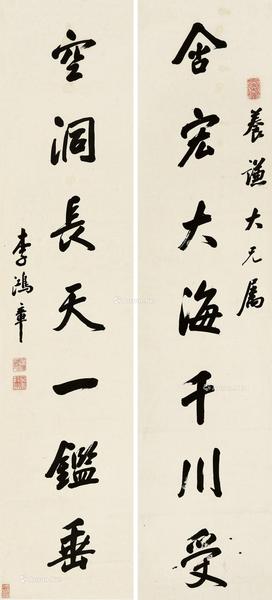 養謙大兄屬
含宏大海千川受
空洞長天一鑑垂
李鴻章